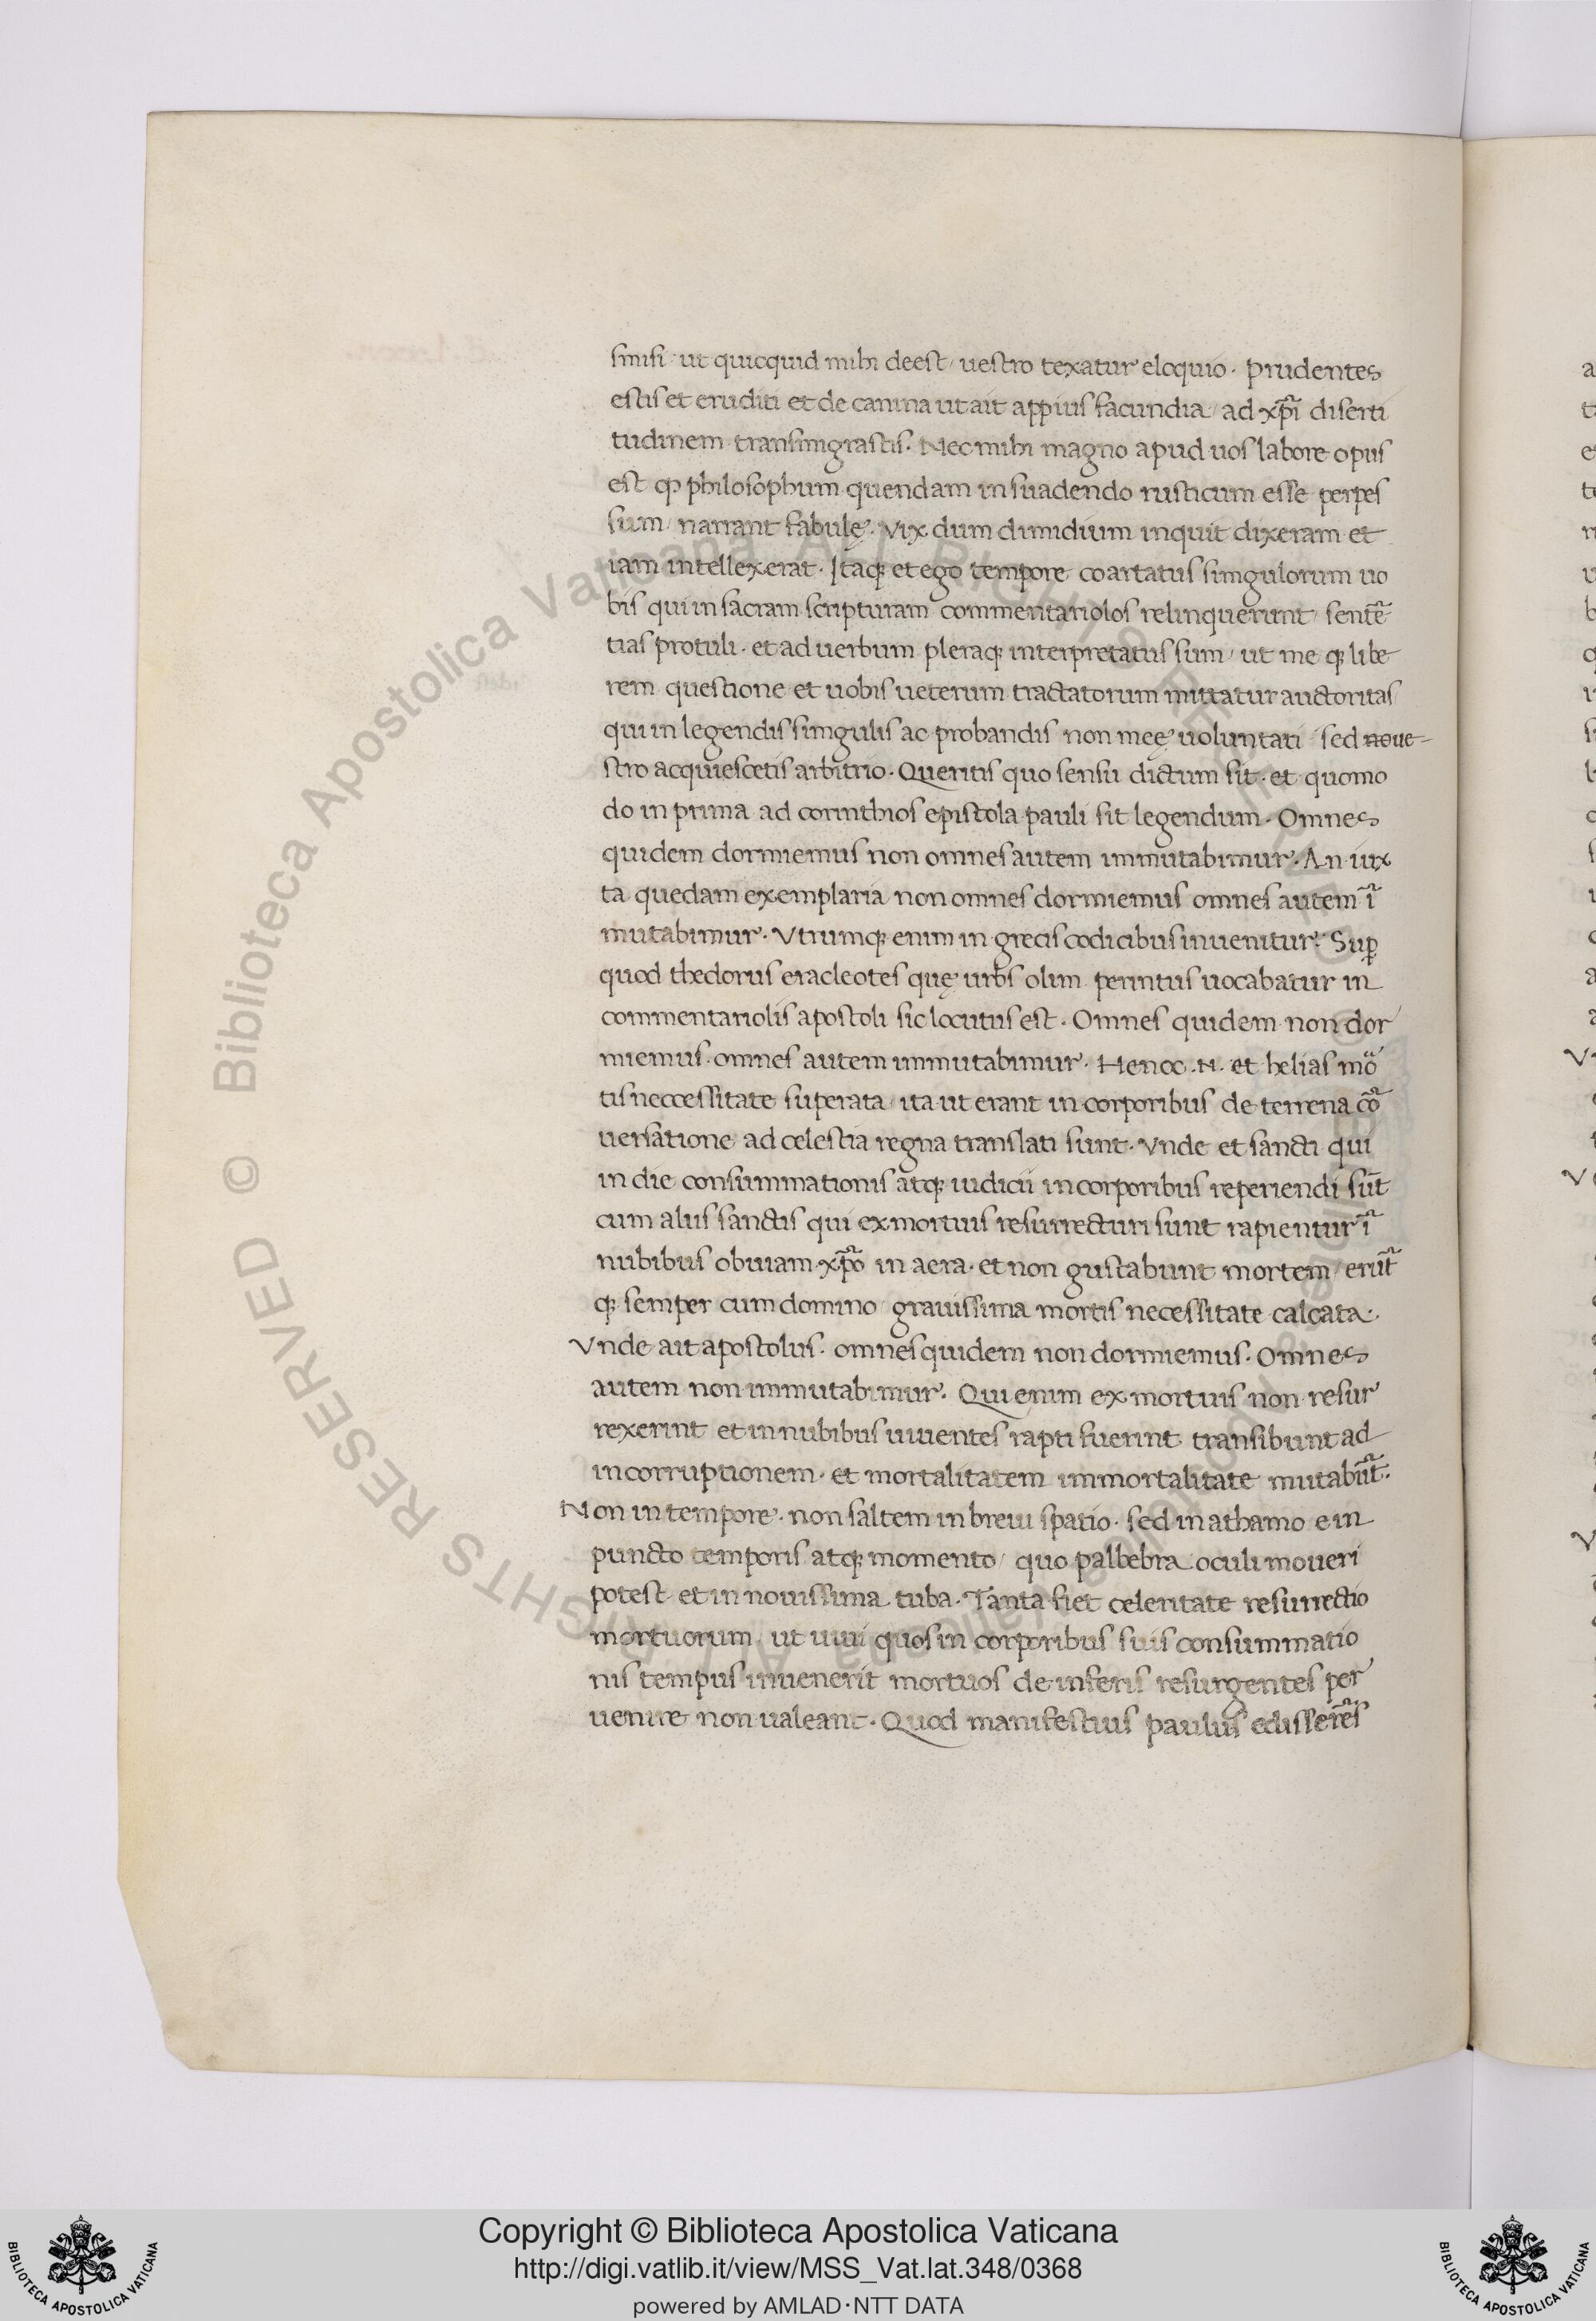 smisi ut quicquid mihi deest / uestro texatur eloquio. Prudentes
estis et eruditi et de canina ut ait appius facundia / ad xp̃i diserti
tudinem transmigrastis. Nec mihi magno apud uos labore opus
est qɔ philosophum quendam in suadendo rusticum esse perpes
sum / narrant fabulę. Vix dum dimidium inquit dixeram et
iam intellexerat. Itaqꝫ et ego tempore coartatus singulorum uo
bis qui in sacram scripturam commentariolos relinquerunt / sentẽ
tias protuli. et ad uerbum pleraqꝫ interpretatus sum / ut me qꝫ libe
rem questione et uobis ueterum tractatorum mittatur auctoritas
qui in legendis simgulis ac probandis non meę uoluntati / sed no ue-
stro acquiescetis arbitrio. Queritis quo sensu dictum sit. et quomo
do in prima ad corinthios epistola pauli sit legendum. Omnes
quidem dormiemus non omnes autem immutabimur. An iux
ta quedam exemplaria non omnes dormiemus omnes autem ĩ
mutabimur. Vtrumqꝫ enim in grecis codicibus inuenitur. Suꝑ
quod thedorus eracleotes quę urbs olim perintus uocabatur in
commentariolis apostoli sic locutus est. Omnes quidem non dor
miemus. omnes autem immutabimur. Henoc .N. et helias mo
tis neccessitate superata / ita ut erant in corporibus de terrena cõ
uersatione ad celestia regna translati sunt. Vnde et sancti qui
in die consummationis atqꝫ iudicii in corporibus reperiendi sũt
cum aliis sanctis qui ex mortuis resurrecturi sunt rapientur ĩ
nubibus obuiam xp̃o in aera. et non gustabunt mortem / erũt
qꝫ semper cum domino / grauissima mortis necessitate calcata.
Vnde ait apostolus. omnes quidem non dormiemus. Omnes
autem non immutabimur. Qui enim ex mortuis non resur
rexerint et in nubibus uiuentes rapti fuerint transibunt ad
incorruptionem. et mortalitatem immortalitate mutabũt.
Non in tempore. non saltem in breui spatio. sed in athamo e in
puncto temporis atqꝫ momento / quo palbebra oculi moueri
potest et in nouissima tuba. Tanta fiet celeritate resurrectio
mortuorum / ut uiui quos in corporibus suis consummatio
nis tempus inuenerit mortuos de inferis resurgentes per
uenire non ualeant. Quod manifestius paulus edisserẽs
© Biblioteca Apostolica Vaticana ALL RIGHTS RESERVED
Copyright © Biblioteca Apostolica Vaticana
http://digi.vatlib.it/view/MSS_Vat.lat.348/0368
powered by AMLAD·NTT DATA
BIBLIOTECA APOSTOLICA VATICANA
BIBLIOTECA APOSTOLICA VATICANA